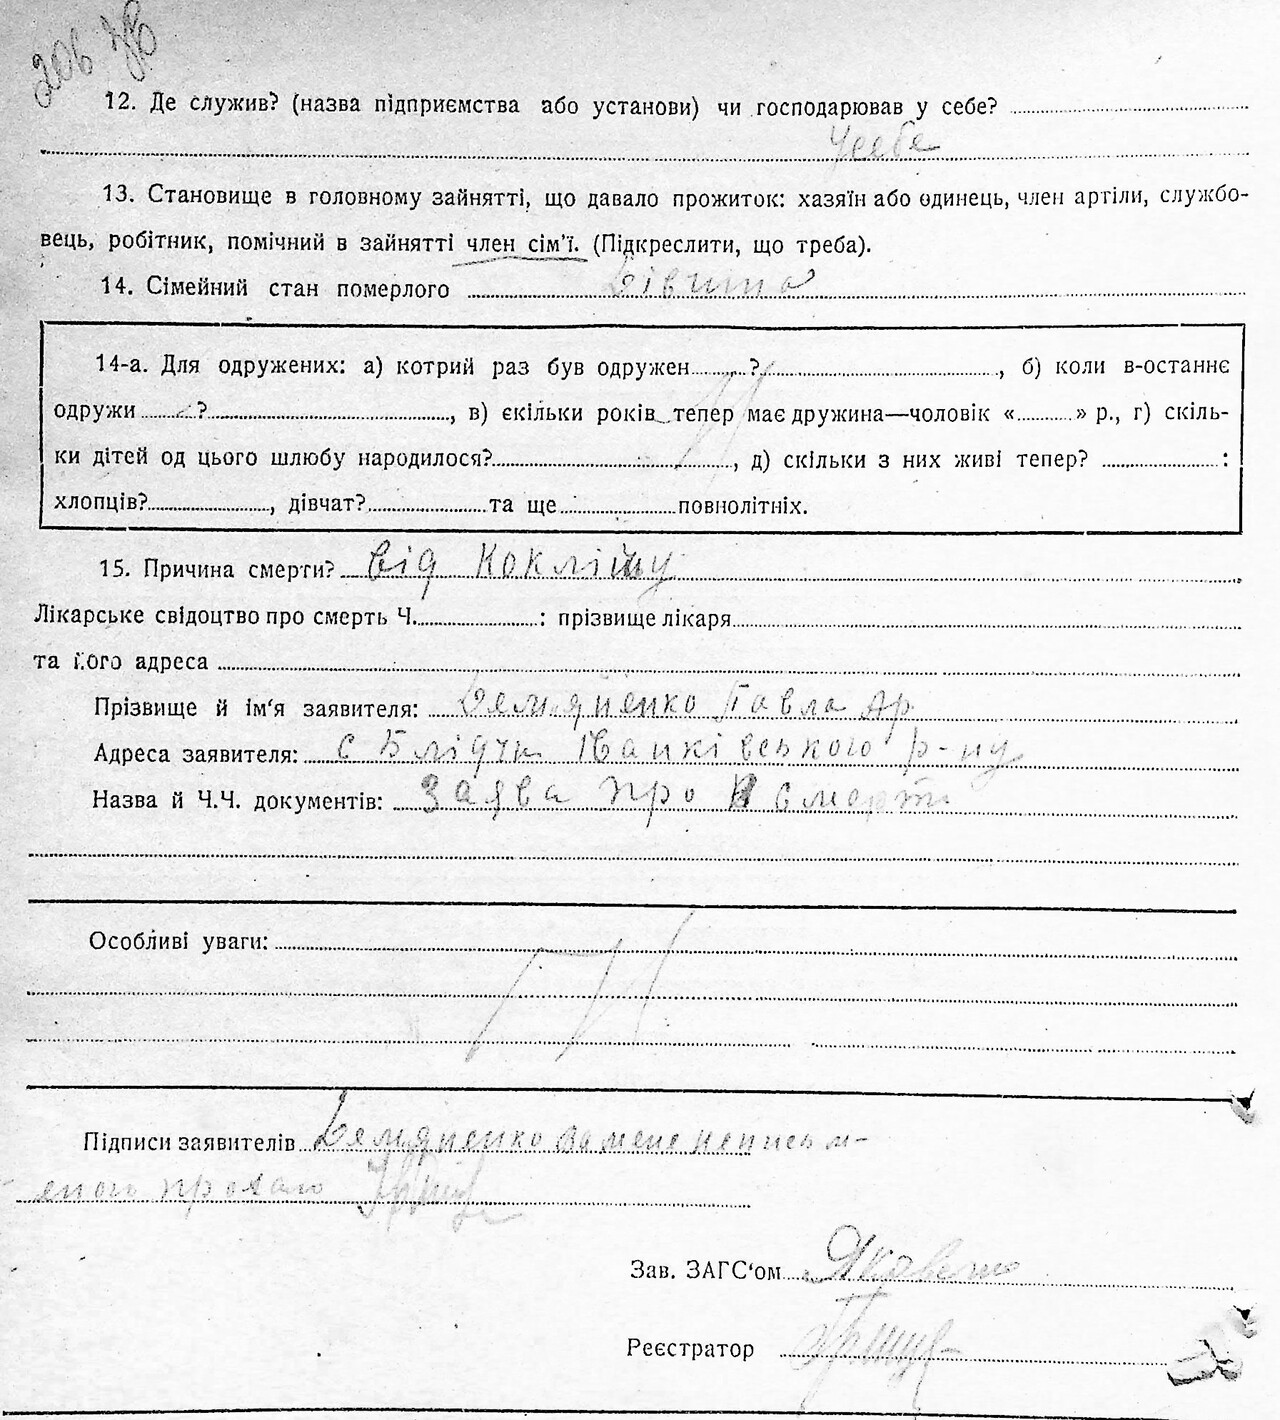 206 зв
12. Де служив? (назва підприємства або установи) чи господарював у себе?
У себе
13. Становище в головному зайнятті, що давало прожиток: хазяїн або одинець, член артіли, службо-
вець, робітник, помічний в зайнятті член сім'ї. (Підкреслити, що треба).
14. Сімейний стан померлого Дівчина
14-а. Для одружених: а) котрий раз був одружен ?, б) коли в-останнє
одружи ?, в) скільки років тепер має дружина—чоловік « » р., г) скіль-
ки дітей од цього шлюбу народилося?, д) скільки з них живі тепер? :
хлопців?, дівчат? та ще повнолітніх.
15. Причина смерти? від коклішу
Лікарське свідоцтво про смерть Ч. : прізвище лікаря
та його адреса
Прізвище й ім'я заявителя: Демяненко Павло Ар
Адреса заявителя: с Блідча Іванківського р-ну
Назва й Ч.Ч. документів: Заява про смерть
Особливі уваги:
Підписи заявителів Демяненко за мене неписьм-
Зав. ЗАГС'ом
Реєстратор